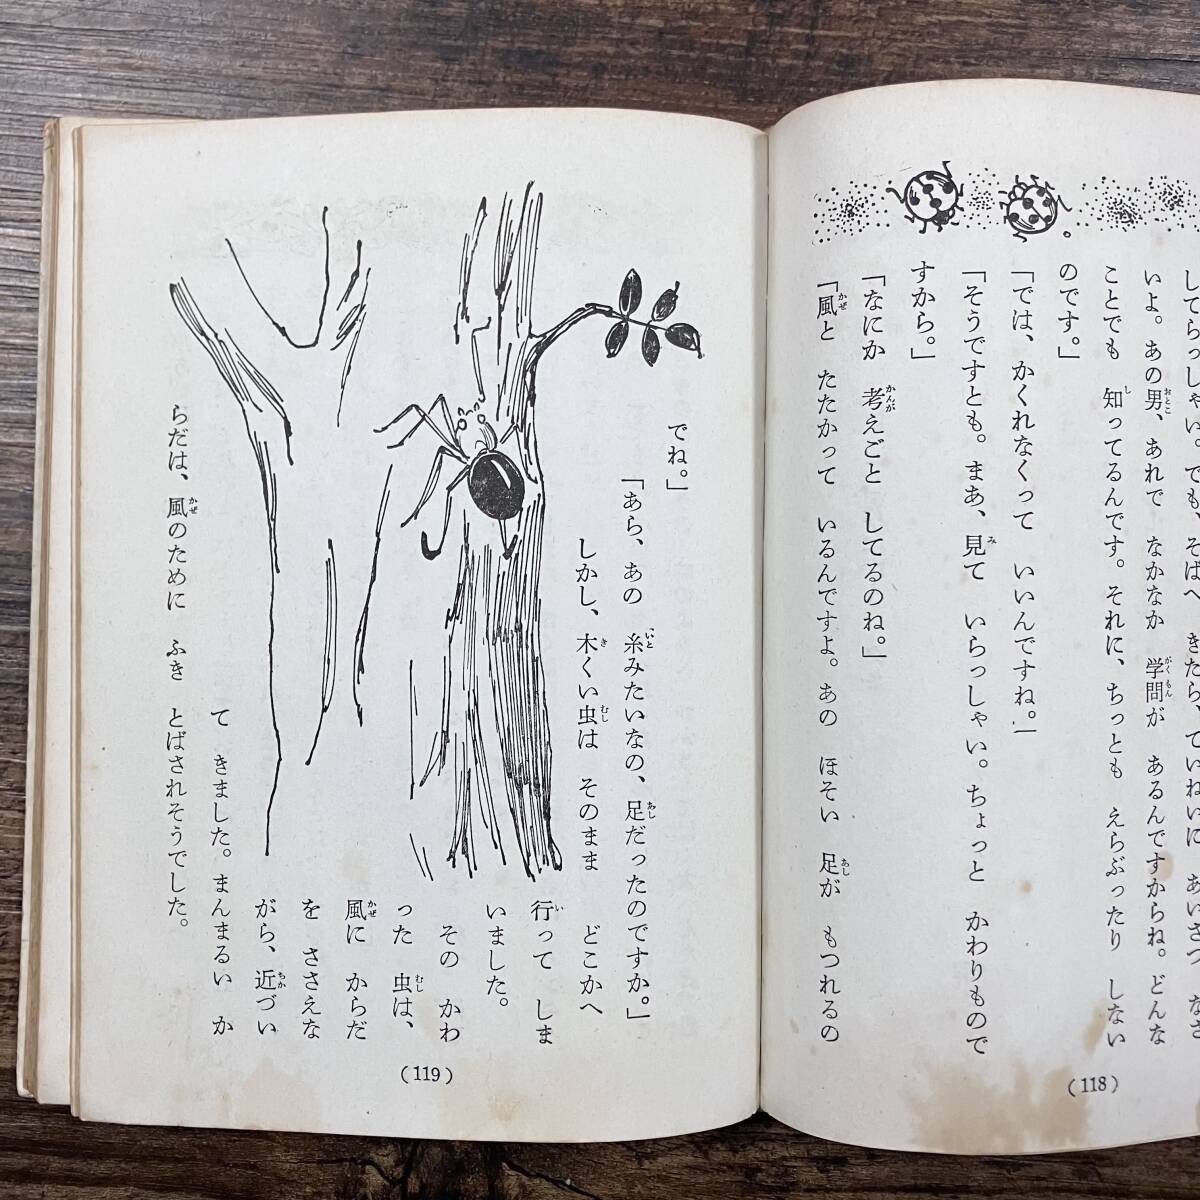 してらっしゃい。でも、そばへ きたら、ていねいに あいさつ なさ
いよ。あの男、あれで なかなか 学問が あるんですからね。どんな
ことでも 知ってるんです。それに、ちっとも えらぶったり しない
のです。」
「では、かくれなくって いいんですね。」
「そうですとも。まあ、見て いらっしゃい。ちょっと かわりもので
すから。」
「なにか 考えごと してるのね。」
「風と たたかって いるんですよ。あの ほそい 足が もつれるの
(118)
でね。」
「あら、あの 糸みたいなの、足だったのですか。」
しかし、木くい虫は そのまま どこかへ
行って しま
いました。
その かわ
った 虫は、
風に からだ
を ささえな
がら、近づい
て きました。まんまるい か
らだは、風のために ふき とばされそうでした。
(119)